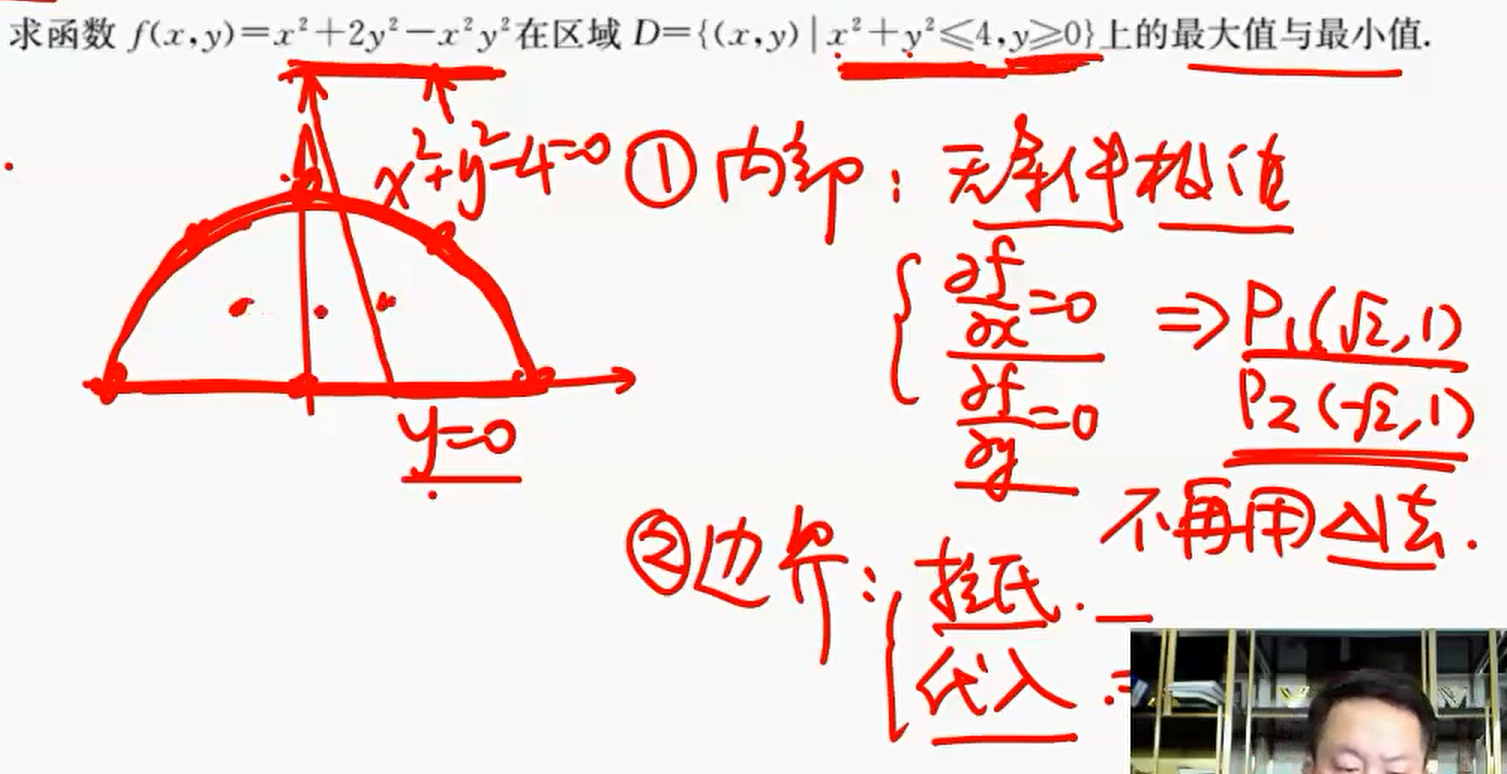 求函数 f(x,y)=x²+2y²-x²y²在区域 D={(x,y)|x²+y²≤4,y≥0}上的最大值与最小值.
x²+y²-4=0
① 内部：无条件极值
∂f/∂x=0 ⇒ P₁(√2,1)
∂f/∂y=0 P₂(-√2,1)
y=0
不再用△法.
② 边界：拉氏.
代入